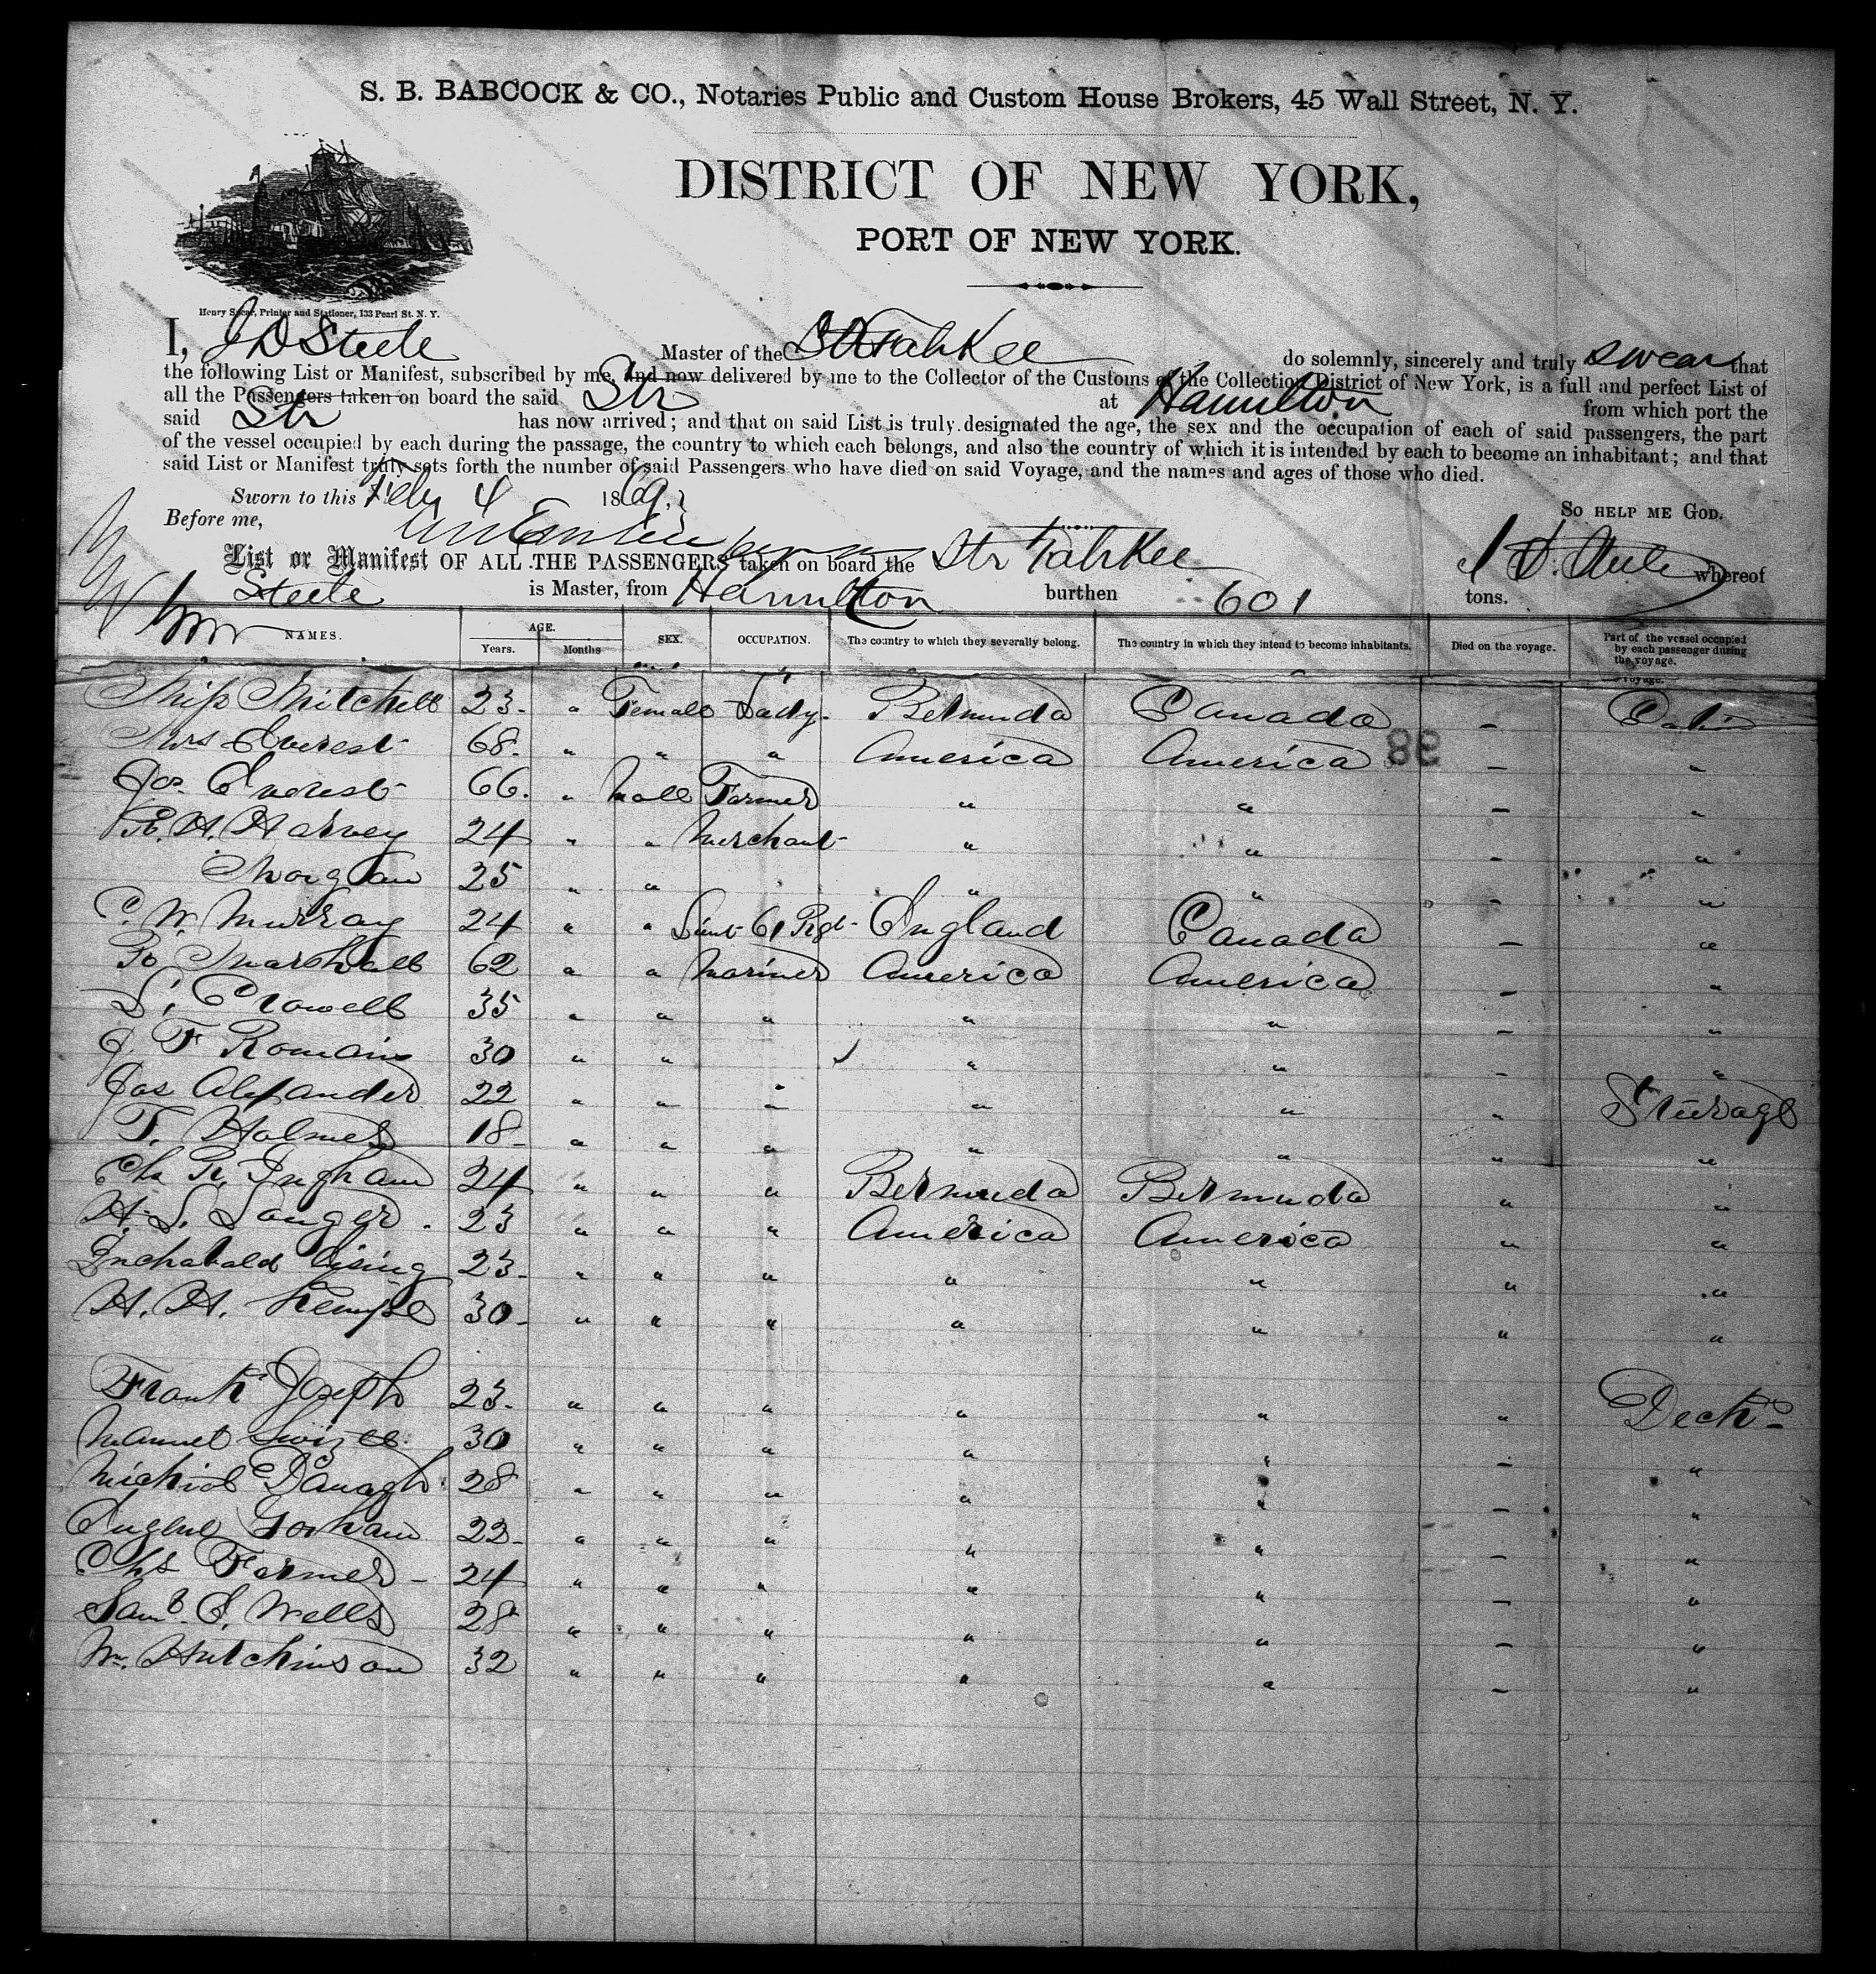 S. B. BABCOCK & CO., Notaries Public and Custom House Brokers, 45 Wall Street, N. Y.
DISTRICT OF NEW YORK,
PORT OF NEW YORK.
Henry Spear, Printer and Stationer, 133 Pearl St. N. Y.
I, J D Steele Master of the do solemnly, sincerely and truly swear that
the following List or Manifest, subscribed by me, and now delivered by me to the Collector of the Customs of the Collection District of New York, is a full and perfect List of
all the Passengers taken on board the said Str at Hamilton from which port the
said Str has now arrived; and that on said List is truly designated the age, the sex and the occupation of each of said passengers, the part
of the vessel occupied by each during the passage, the country to which each belongs, and also the country of which it is intended by each to become an inhabitant; and that
said List or Manifest truly sets forth the number of said Passengers who have died on said Voyage, and the names and ages of those who died.
Sworn to this Feby 4 1869. So HELP ME GOD.
Before me,
List or Manifest OF ALL THE PASSENGERS taken on board the Str Tahkee whereof
J D. Steele
Steele is Master, from Hamilton burthen 601 tons.
NAMES. AGE. Years. Months SEX. OCCUPATION. The country to which they severally belong. The country in which they intend to become inhabitants. Died on the voyage. Part of the vessel occupied by each passenger during the voyage.
Miss Mitchell 23. " Female Lady. Bermuda Canada - Cabin
Mrs Everest 68. " " " America America - "
98
Jos. Everest 66. " Male Farmer " " - "
H. Harvey 24 " " Merchant " " - "
Morgan 25 " " " " - "
C. W. Murray 24 " " Lieut 61 Rgt. England Canada - "
Marshall 62 " " Mariner America America - "
S. Crowell 35 " " " " " - "
J. F Romain 30 " " " " - "
Jos Alexander 22 " " " " " " Steerage
T. Holmes 18 " " " " " " "
Ch R. Ingham 24 " " " Bermuda Bermuda " "
H. S. Sanger. 23 " " " America America " "
Rising 23. " " " " " " "
H. H. Kempe 30. " " " " " " "
Frank Joseph 23. " " " " " " Deck
Manuel 30 " " " " " - "
28 " " " " " - "
Eugene Gorham 22. " " " " " - "
Chs Farmer 24 " " " " " - "
Saml. S. Wells 28 " " " " " - "
Wm. Hutchinson 32 " " " " " - "